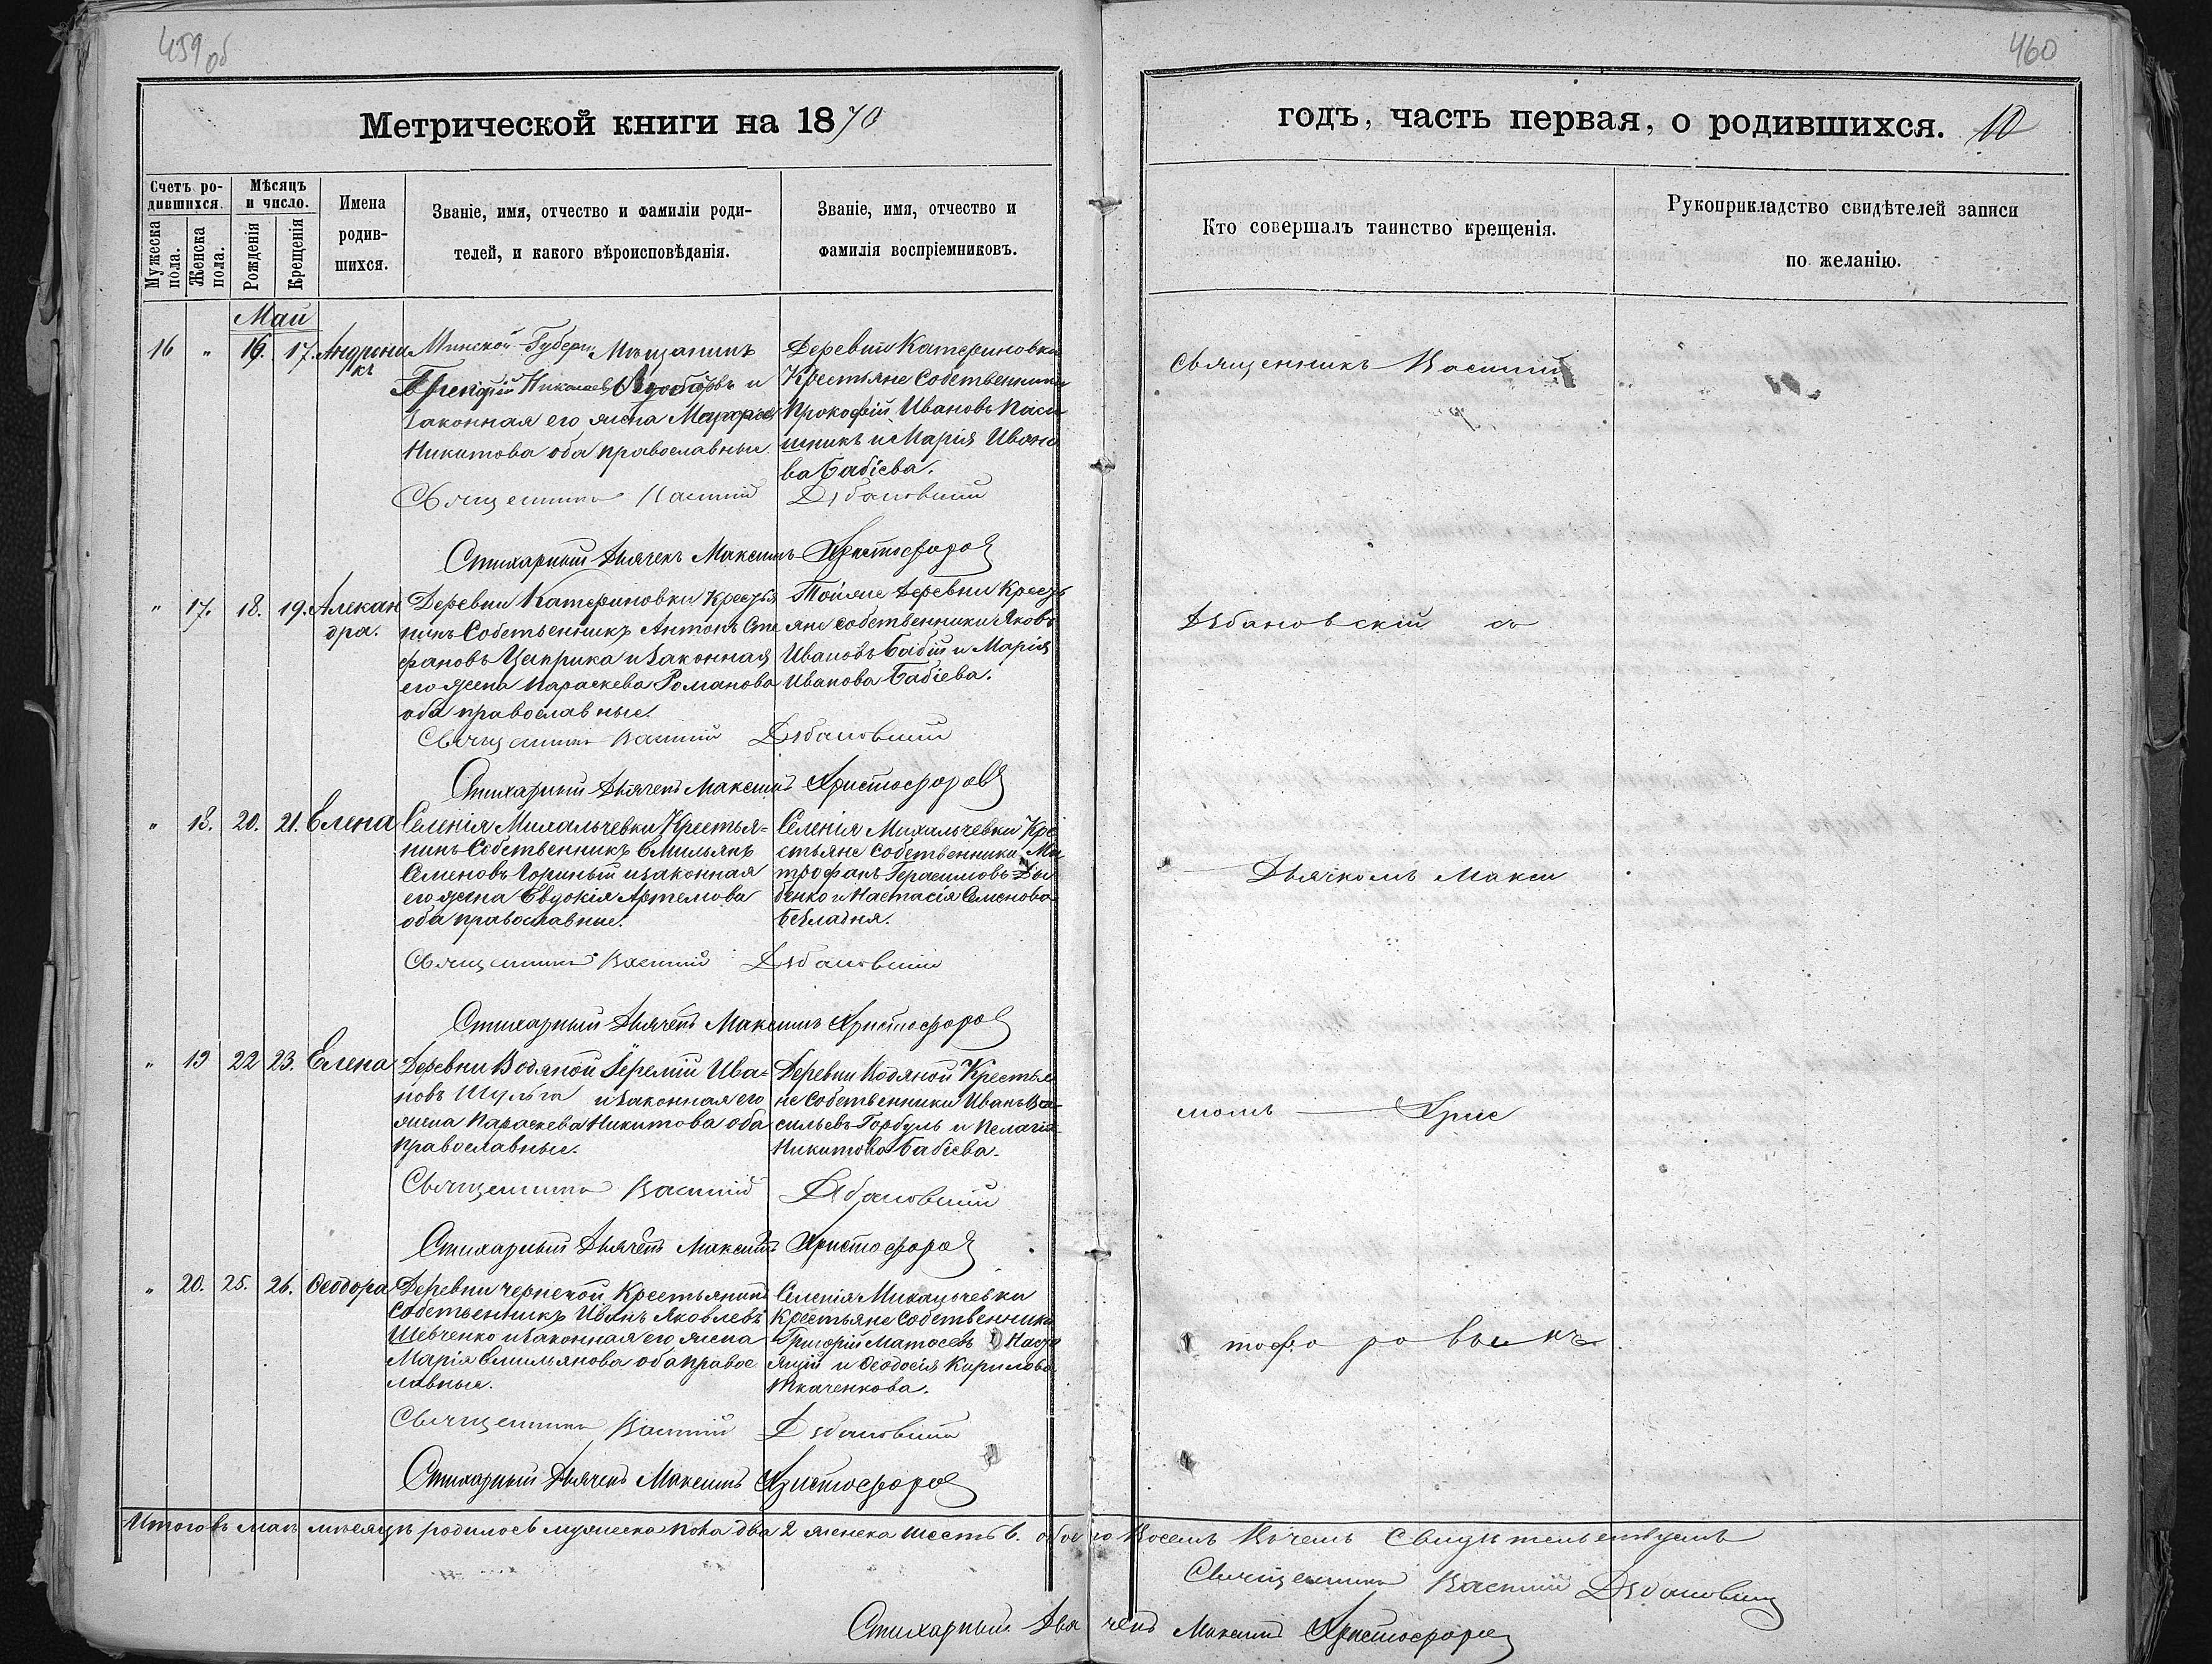 459 об
Метрической книги на 1870
Счетъ родившихся.
Мѣсяцъ и число.
Мужеска пола.
Женска пола.
Рожденія
Крещенія
Имена родившихся.
Званіе, имя, отчество и фамиліи роди-
телей, и какого вѣроисповѣданія.
Званіе, имя, отчество и
фамилія воспріемниковъ.
Май
16 " 16. 17. Андрони
къ
Минской Губерн Мѣщанинъ
Николаевъ и
Законная его жена
Никитова оба православные.
Деревни Катериновки
Крестьяне Собственники
Прокофій Ивановъ Паси
шникъ и Марія Ивано
ва Бабіева.
Священникъ Василій Дубановскій
Стихарный Дьячекъ Максимъ Христофоровъ
" 17. 18. 19. Алекан
дра.
Деревни Катериновки Крестья
нинъ Собственникъ Антонъ Сте
фановъ Цаприка и Законная
его жена Параскева Романова
оба православные.
Тойже деревни Кресть
яне собственники Яковъ
Ивановъ Бабій и Марія
Иванова Бабіева.
Священникъ Василій Дубановскій
Стихарный Дьячекъ Максимъ Христофоровъ
" 18. 20. 21. Елена
Селенія Михальчевки Крестья=
нинъ Собственникъ Емильянъ
Семеновъ Гориный и законная
его жена Евдокія Артемова
оба православные.
Селенія Михальчевки Кре
стьяне собственники Ми
трофанъ Герасимовъ Ды
бенко и Настасія Семенова
Безладня.
Священникъ Василій Дубановскій
Стихарный Дьячекъ Максимъ Христофоровъ
" 19 22 23. Елена
Деревни Водяной Іеремій Ива=
новъ Шульга и законная его
жена Параскева Никитова оба
православные.
Деревни Водяной Крестья
не Собственники Иванъ Ва=
сильевъ Горбуль и Пелагія
Никитова Бабіева.
Священникъ Василій Дубановскій
Стихарный Дьячекъ Максимъ Христофоровъ
" 20. 25. 26. Ѳеодора
Деревни Чернечой Крестьянинъ
Собственникъ Иванъ Яковлевъ
Шевченко и законная его жена
Марія Емильянова оба правос
лавные.
Селенія Михальчевки
Крестьяне Собственники
Григорій Матѳеевъ
и Ѳеодосія Кирилова
Ткаченкова.
Священникъ Василій Дубановскій
Стихарный Дьячекъ Максимъ Христофоровъ
Итого въ маѣ мѣсяцѣ родилось мужеска пола два 2 женска шесть 6. обоего восемъ въ чемъ свидѣтельствуемъ
Священникъ Василій Дубановскій
Стихарный Дьячекъ Максимъ Христофоровъ
460
годъ, часть первая, о родившихся. 10
Кто совершалъ таинство крещенія.
Рукоприкладство свидѣтелей записи
по желанію.
Священникъ Василій
Дубановскій съ
Дьячкомъ Макси
момъ Хрис
тофо ро вымъ